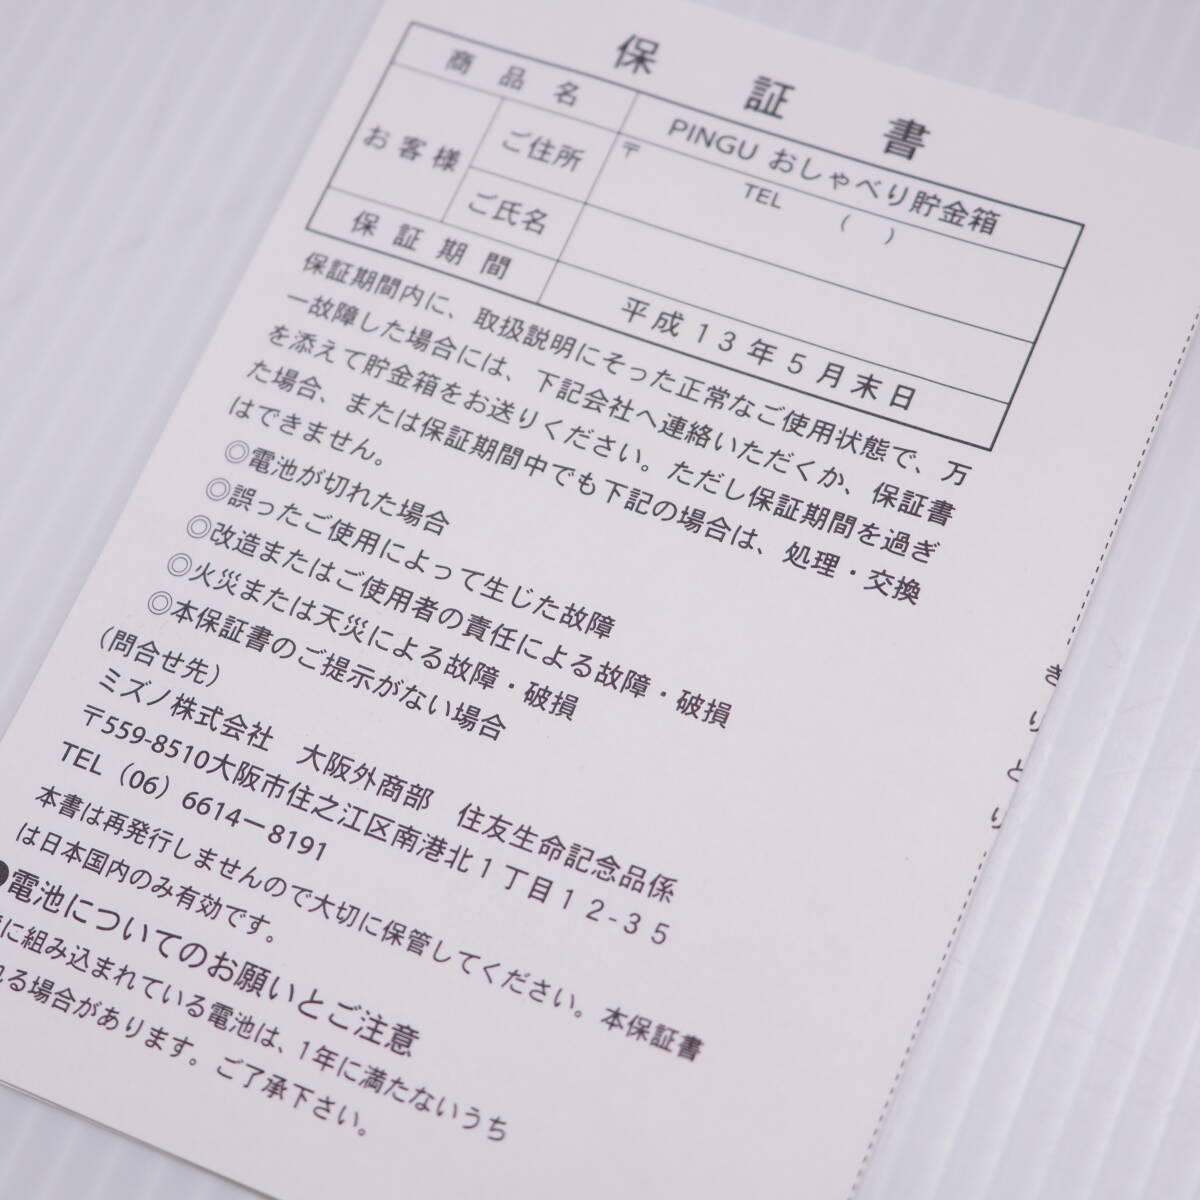 保証書
商品名 PINGU おしゃべり貯金箱
お客様 ご住所 〒 TEL ( )
ご氏名
保証期間 平成13年5月末日
保証期間内に、取扱説明にそった正常なご使用状態で、万
一故障した場合には、下記会社へ連絡いただくか、保証書
を添えて貯金箱をお送りください。ただし保証期間を過ぎ
た場合、または保証期間中でも下記の場合は、処理・交換
はできません。
◎電池が切れた場合
◎誤ったご使用によって生じた故障
◎改造またはご使用者の責任による故障・破損
◎火災または天災による故障・破損
◎本保証書のご提示がない場合
(問合せ先)
ミズノ株式会社 大阪外商部 住友生命記念品係
〒559-8510大阪市住之江区南港北1丁目12-35
TEL (06) 6614ー8191
本書は再発行しませんので大切に保管してください。本保証書
は日本国内のみ有効です。
●電池についてのお願いとご注意
に組み込まれている電池は、1年に満たないうち
る場合があります。ご了承下さい。
きりとり